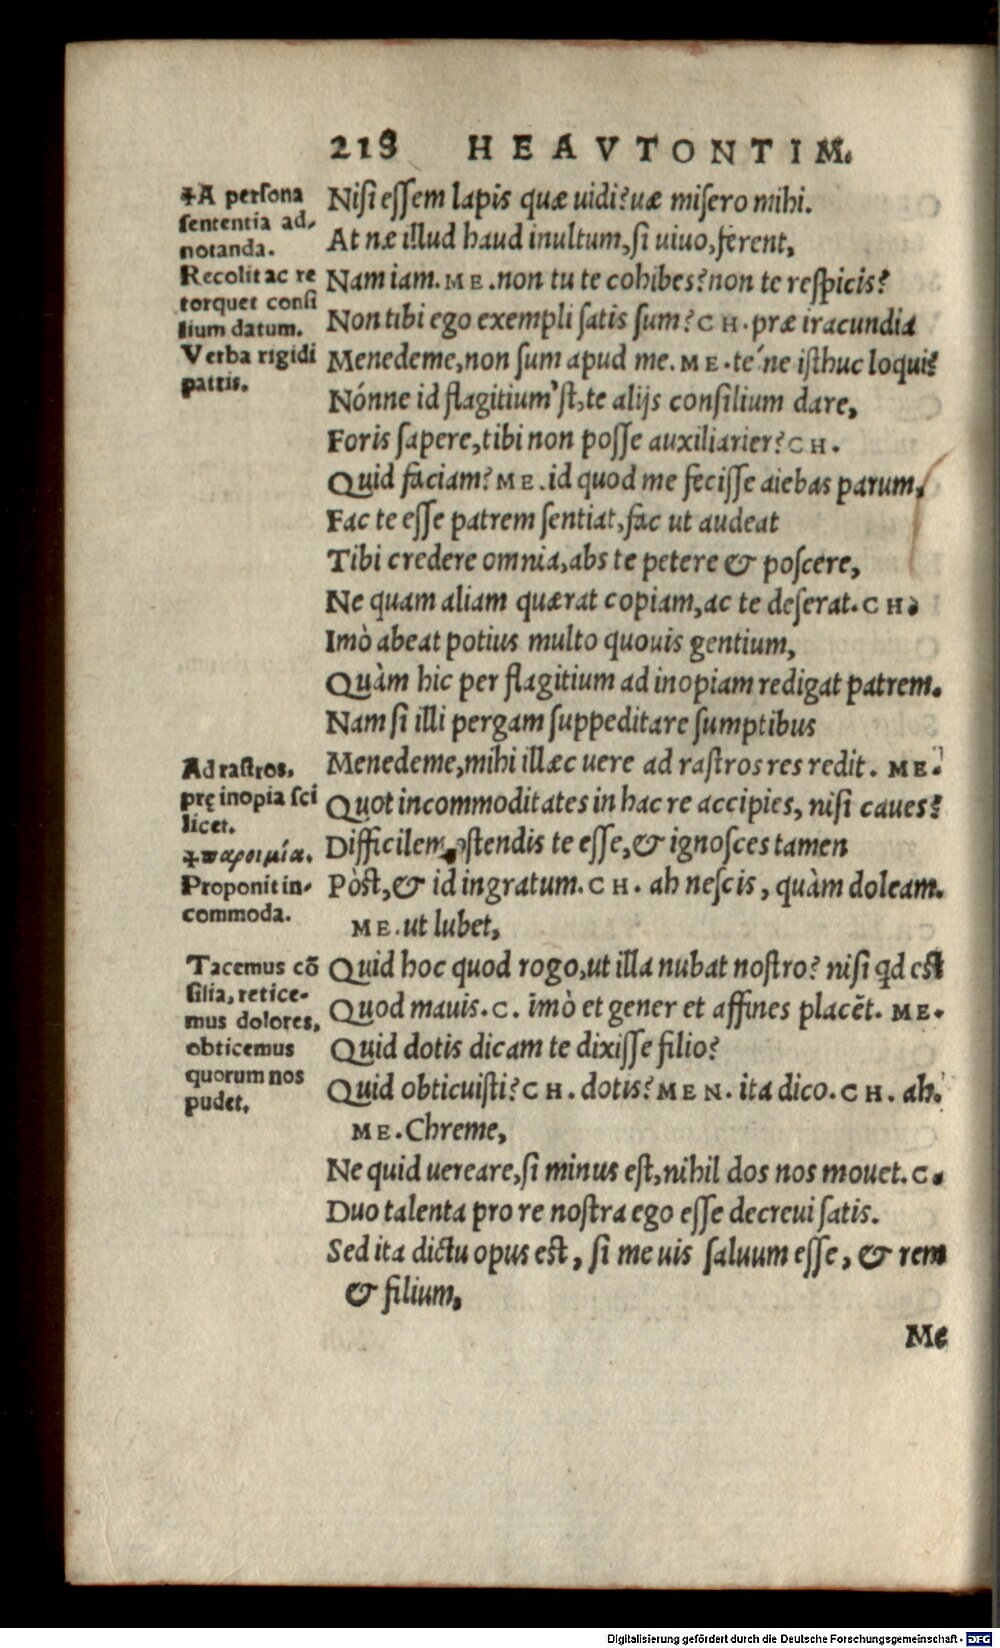 218 HEAVTONTIM.
✢A persona
sententia ad-
notanda.
Recolit ac re
torquet consi
lium datum.
Verba rigidi
patris.
Nisi essem lapis quæ uidi? uæ misero mihi.
At næ illud haud inultum, si uiuo, ferent,
Nam iam. ME. non tu te cohibes? non te respicis?
Non tibi ego exempli satis sum? CH. præ iracundia
Menedeme, non sum apud me. ME. te´ne isthuc loqui?
Nónne id flagitium'st, te alijs consilium dare,
Foris sapere, tibi non posse auxiliarier? CH.
Quid faciam? ME. id quod me fecisse aiebas parum,
Fac te esse patrem sentiat, fac ut audeat
Tibi credere omnia, abs te petere & poscere,
Ne quam aliam quærat copiam, ac te deserat. CH.
Imò abeat potius multo quouis gentium,
Quàm hic per flagitium ad inopiam redigat patrem.
Nam si illi pergam suppeditare sumptibus
Ad rastros,
prę inopia sci
licet.
✢παροιμία.
Proponit in-
commoda.
Menedeme, mihi illæc uere ad rastros res redit. ME.
Quot incommoditates in hac re accipies, nisi caues?
Difficilem ostendis te esse, & ignosces tamen
Pòst, & id ingratum. CH. ah nescis, quàm doleam.
ME. ut lubet,
Tacemus cō
silia, retice-
mus dolores,
obticemus
quorum nos
pudet.
Quid hoc quod rogo, ut illa nubat nostro? nisi qd est
Quod mauis. C. imò et gener et affines placēt. ME.
Quid dotis dicam te dixisse filio?
Quid obticuisti? CH. dotis? MEN. ita dico. CH. ah.
ME. Chreme,
Ne quid uereare, si minus est, nihil dos nos mouet. C.
Duo talenta pro re nostra ego esse decreui satis.
Sed ita dictu opus est, si me uis saluum esse, & rem
& filium,
Me
Digitalisierung gefördert durch die Deutsche Forschungsgemeinschaft - DFG